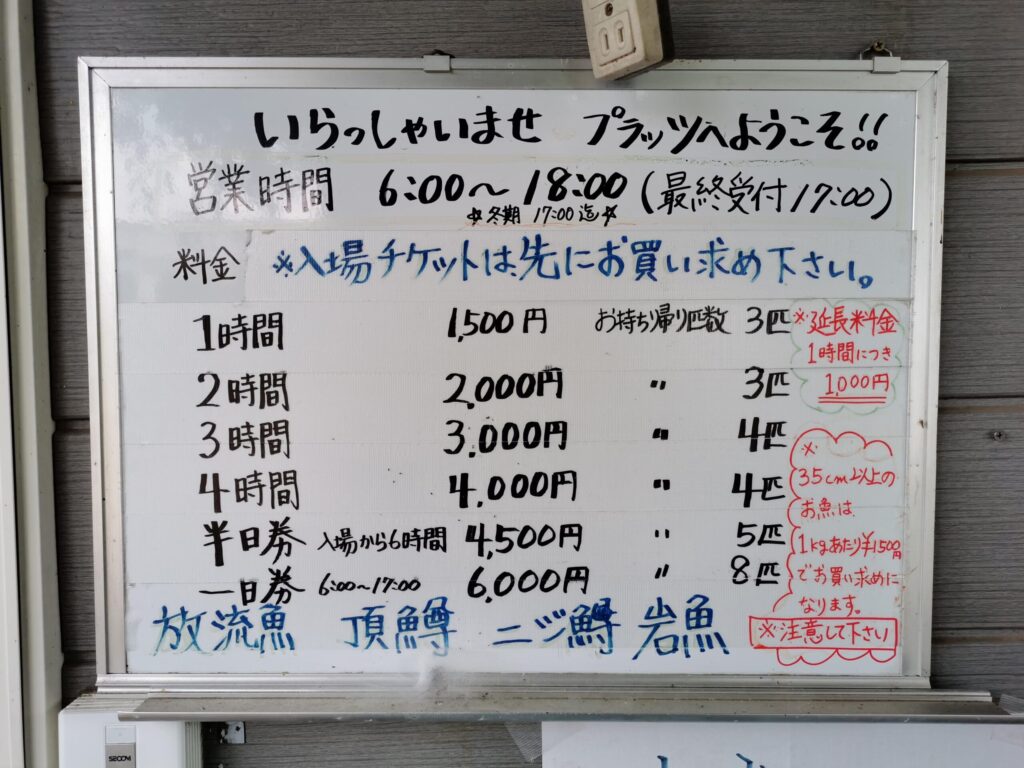 いらっしゃいませ プラッツへようこそ!!
営業時間 6:00～18:00 (最終受付17:00)
☆冬期 17:00迄☆
料金 ※入場チケットは先にお買い求め下さい。
1時間 1,500円 お持ち帰り匹数 3匹
2時間 2,000円 〃 3匹
3時間 3,000円 〃 4匹
4時間 4,000円 〃 4匹
半日券 入場から6時間 4,500円 〃 5匹
一日券 6:00～17:00 6,000円 〃 8匹
放流魚 頂鱒 ニジ鱒 岩魚
※延長料金
1時間につき
1,000円
※
35cm以上の
お魚は
1kgあたり¥1500円
でお買い求めに
なります。
※注意して下さい
SECOM